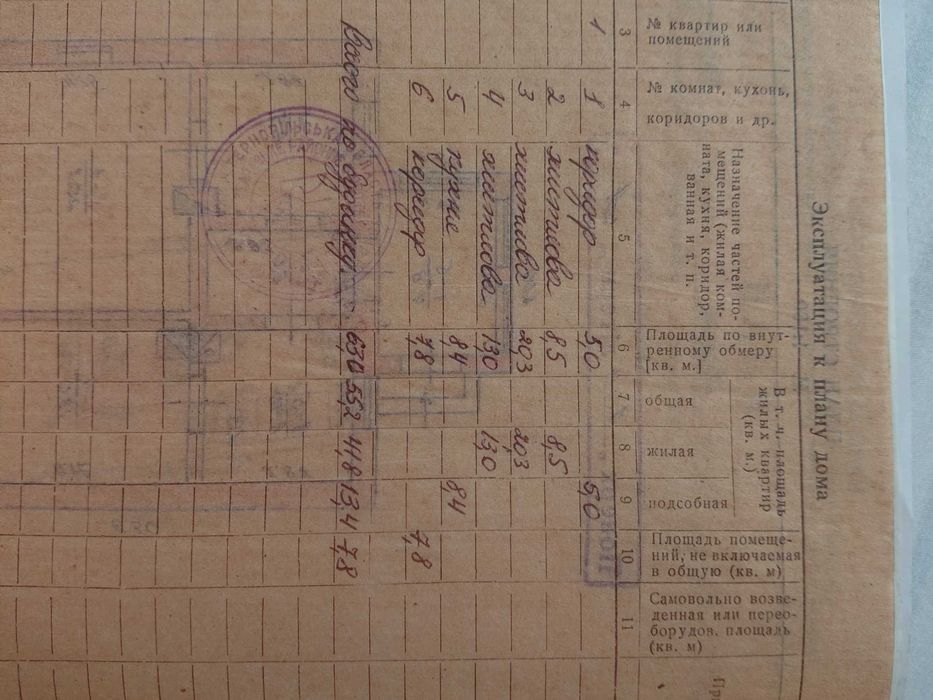 Эксплуатация к плану дома
№ квартир или
помещений
№ комнат, кухонь,
коридоров и др.
Назначение частей по-
мещений (жилая ком-
ната, кухня, коридор,
ванная и т. п.
Площадь по внут-
ренному обмеру
[кв. м.]
В т. ч. площадь
жилых квартир
(кв. м.)
общая
жилая
подсобная
Площадь помеще-
ний, не включаемая
в общую (кв. м)
Самовольно возве-
денная или перео-
борудов. площадь
(кв. м)
Пр
3 4 5 6 7 8 9 10 11
1 1 коридор 5,0 5,0
2 житлова 8,5 8,5
3 житлова 20,3 20,3
4 житлова 13,0 13,0
5 кухне 8,4 8,4
6 коридор 7,8 7,8
Всього по будинку: 63,0 55,2 41,8 13,4 7,8